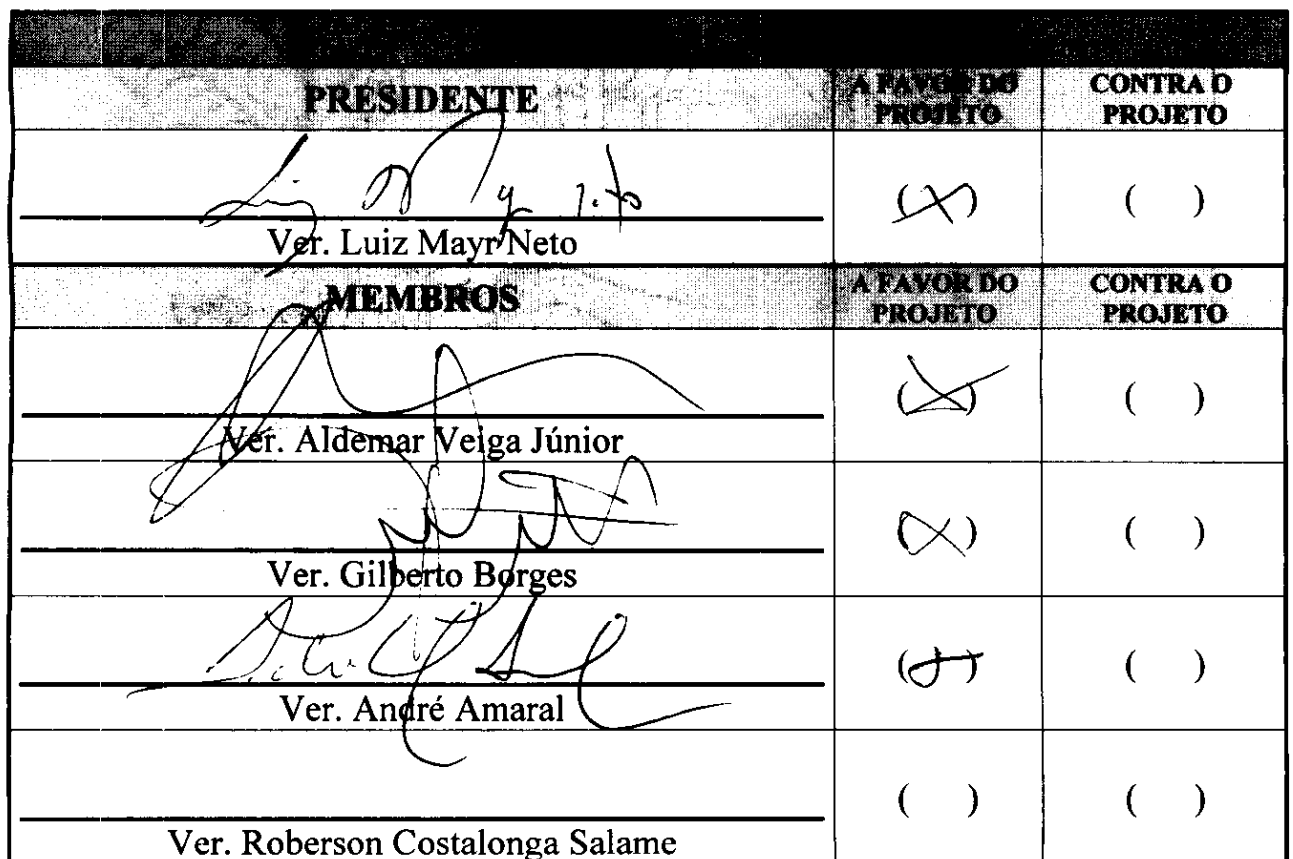 PRESIDENTE A FAVOR DO PROJETO CONTRA O PROJETO
(X) ( )
Ver. Luiz Mayr Neto
MEMBROS A FAVOR DO PROJETO CONTRA O PROJETO
(X) ( )
Ver. Aldemar Veiga Júnior
(X) ( )
Ver. Gilberto Borges
( ) ( )
Ver. André Amaral
( ) ( )
Ver. Roberson Costalonga Salame